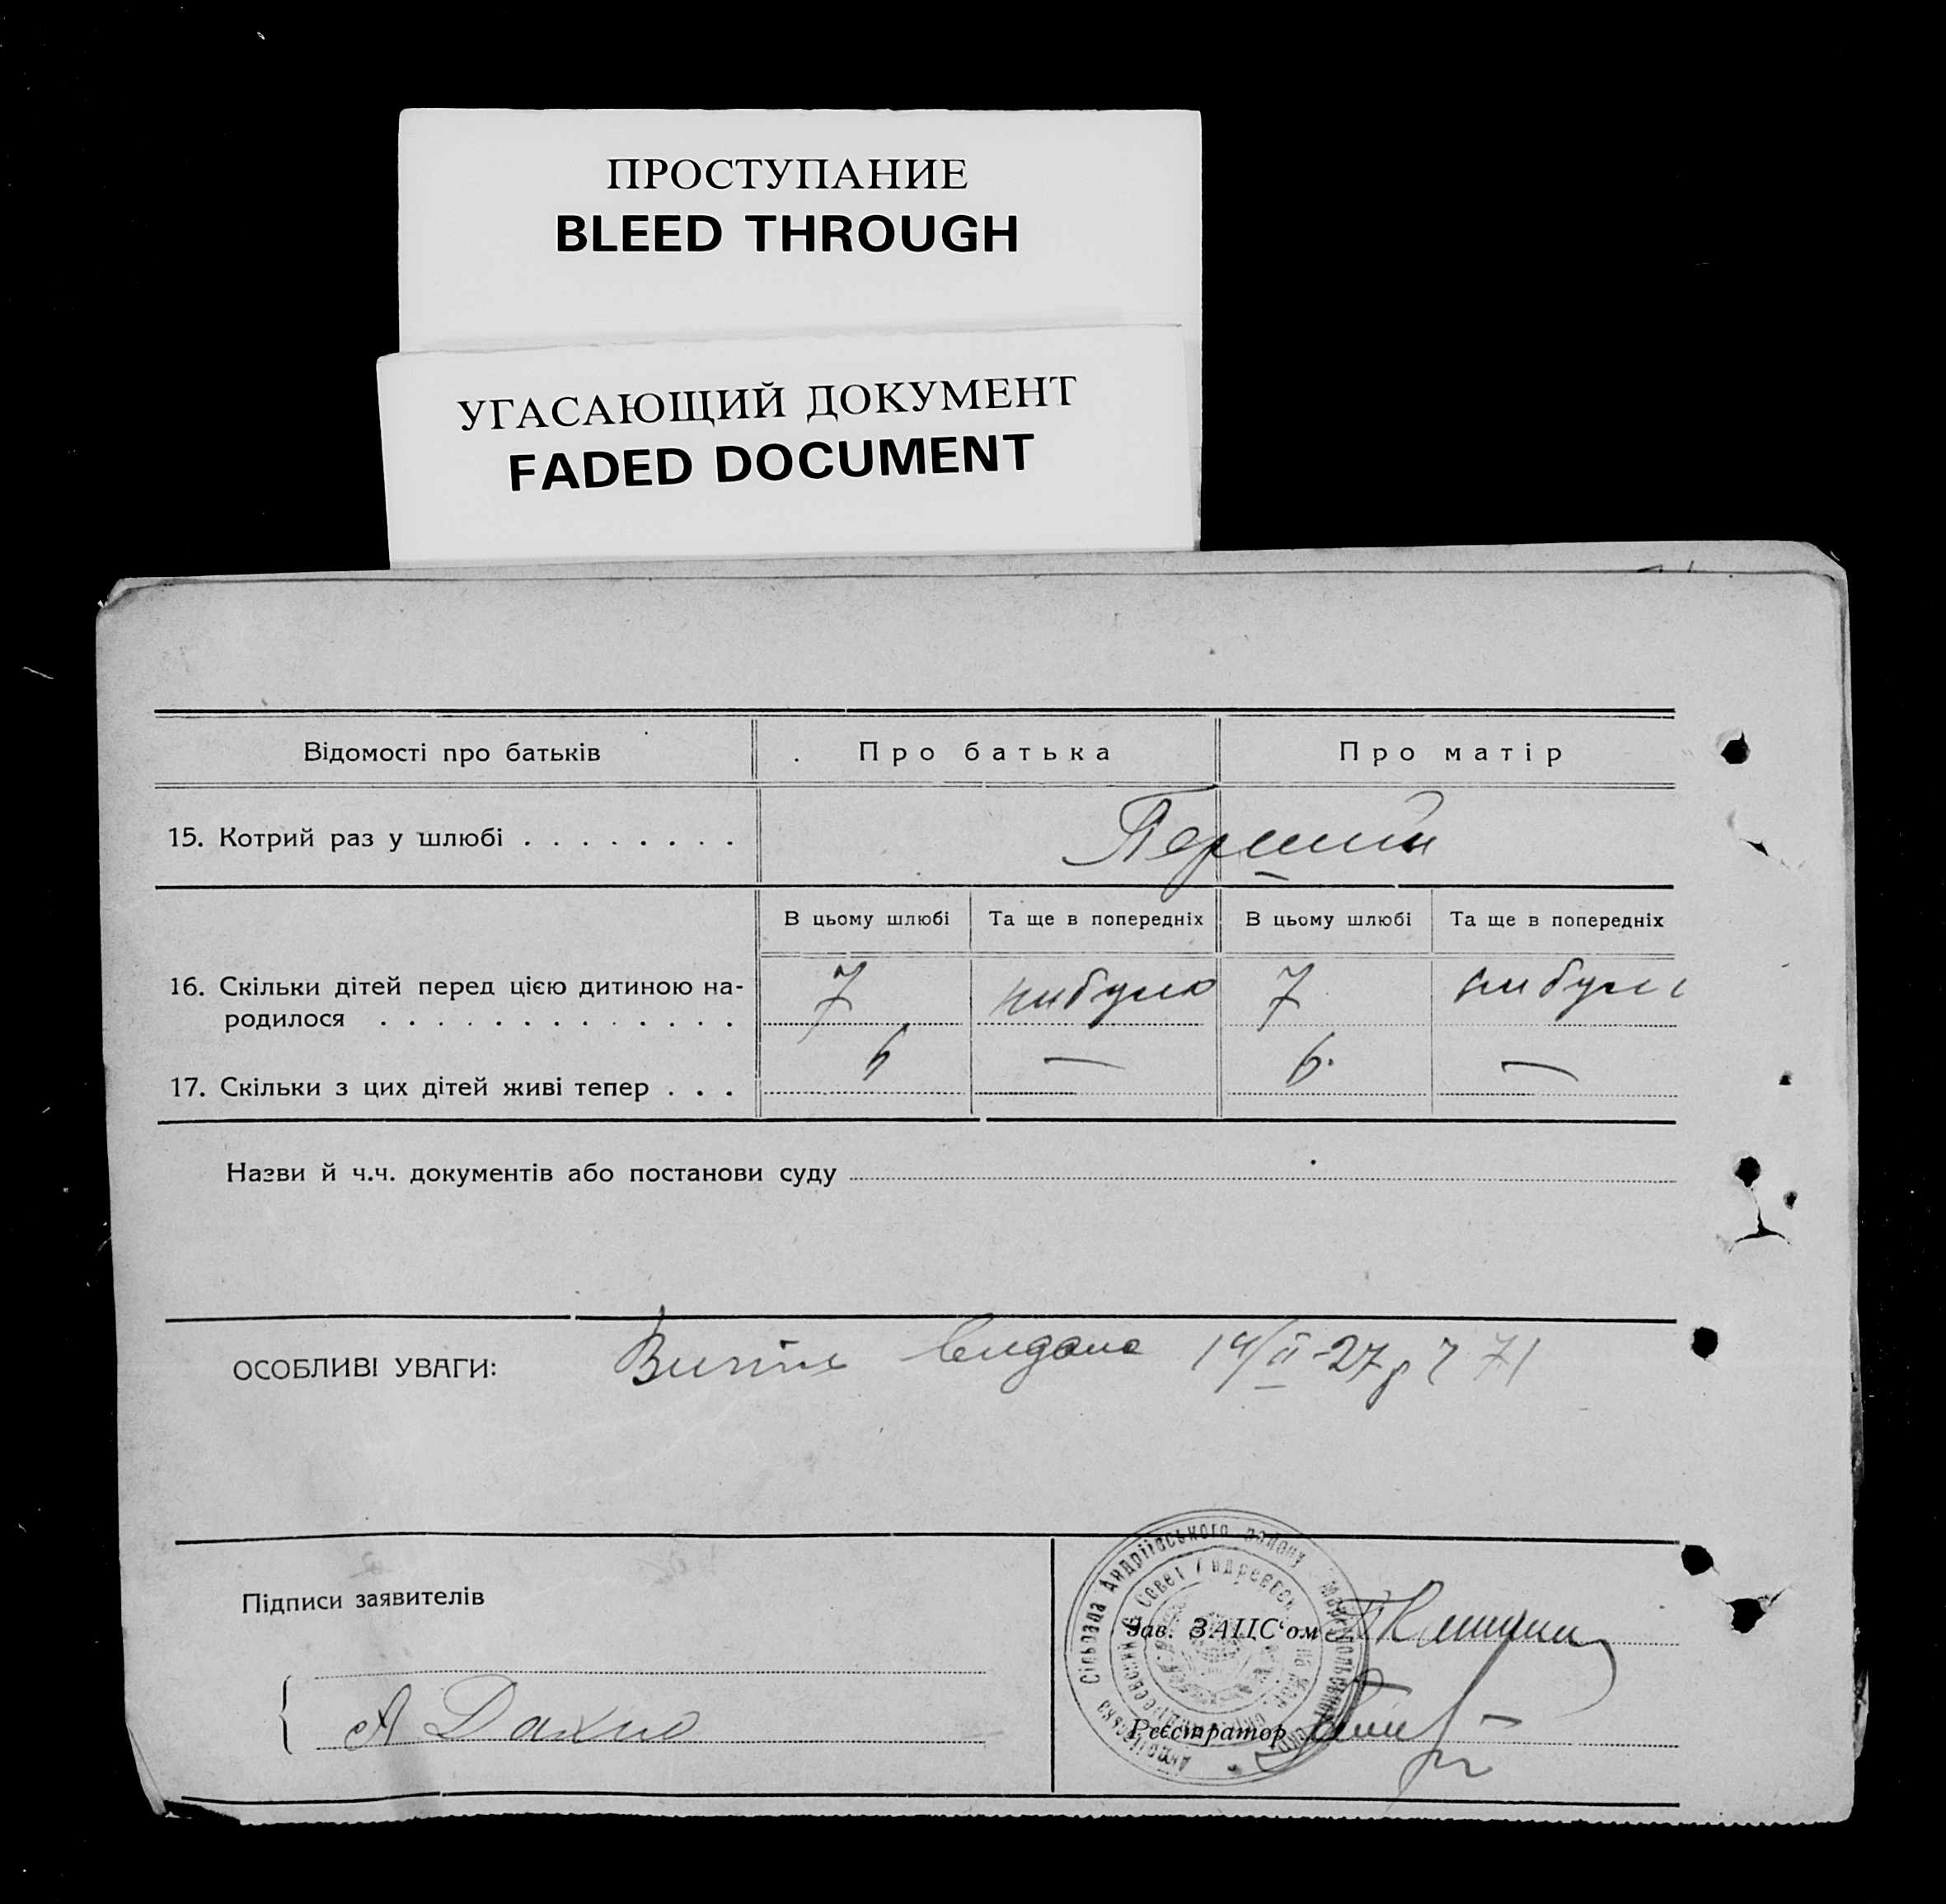 ПРОСТУПАНИЕ
BLEED THROUGH
УГАСАЮЩИЙ ДОКУМЕНТ
FADED DOCUMENT
Відомості про батьків
Про батька
Про матір
15. Котрий раз у шлюбі . . . . . . . .
Перший
В цьому шлюбі
Та ще в попередніх
В цьому шлюбі
Та ще в попередніх
16. Скільки дітей перед цією дитиною на-
родилося . . . . . . . . . . . . .
7
нибуло
7
нибуло
17. Скільки з цих дітей живі тепер . . .
6
—
6.
—
Назви й ч.ч. документів або постанови суду
ОСОБЛИВІ УВАГИ:
видана 14/II-27р 71
Підписи заявителів
А Дахно
Зав. ЗАЦС‘ом
Реєстратор
Андріївська Сільрада Андріївського району